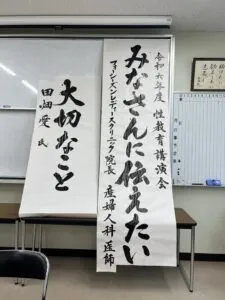 令和六年度 性教育講演会
みなさんに伝えたい
フィシーズヘレディースクリニック院長 産婦人科医師
大切なこと
田畑愛 氏